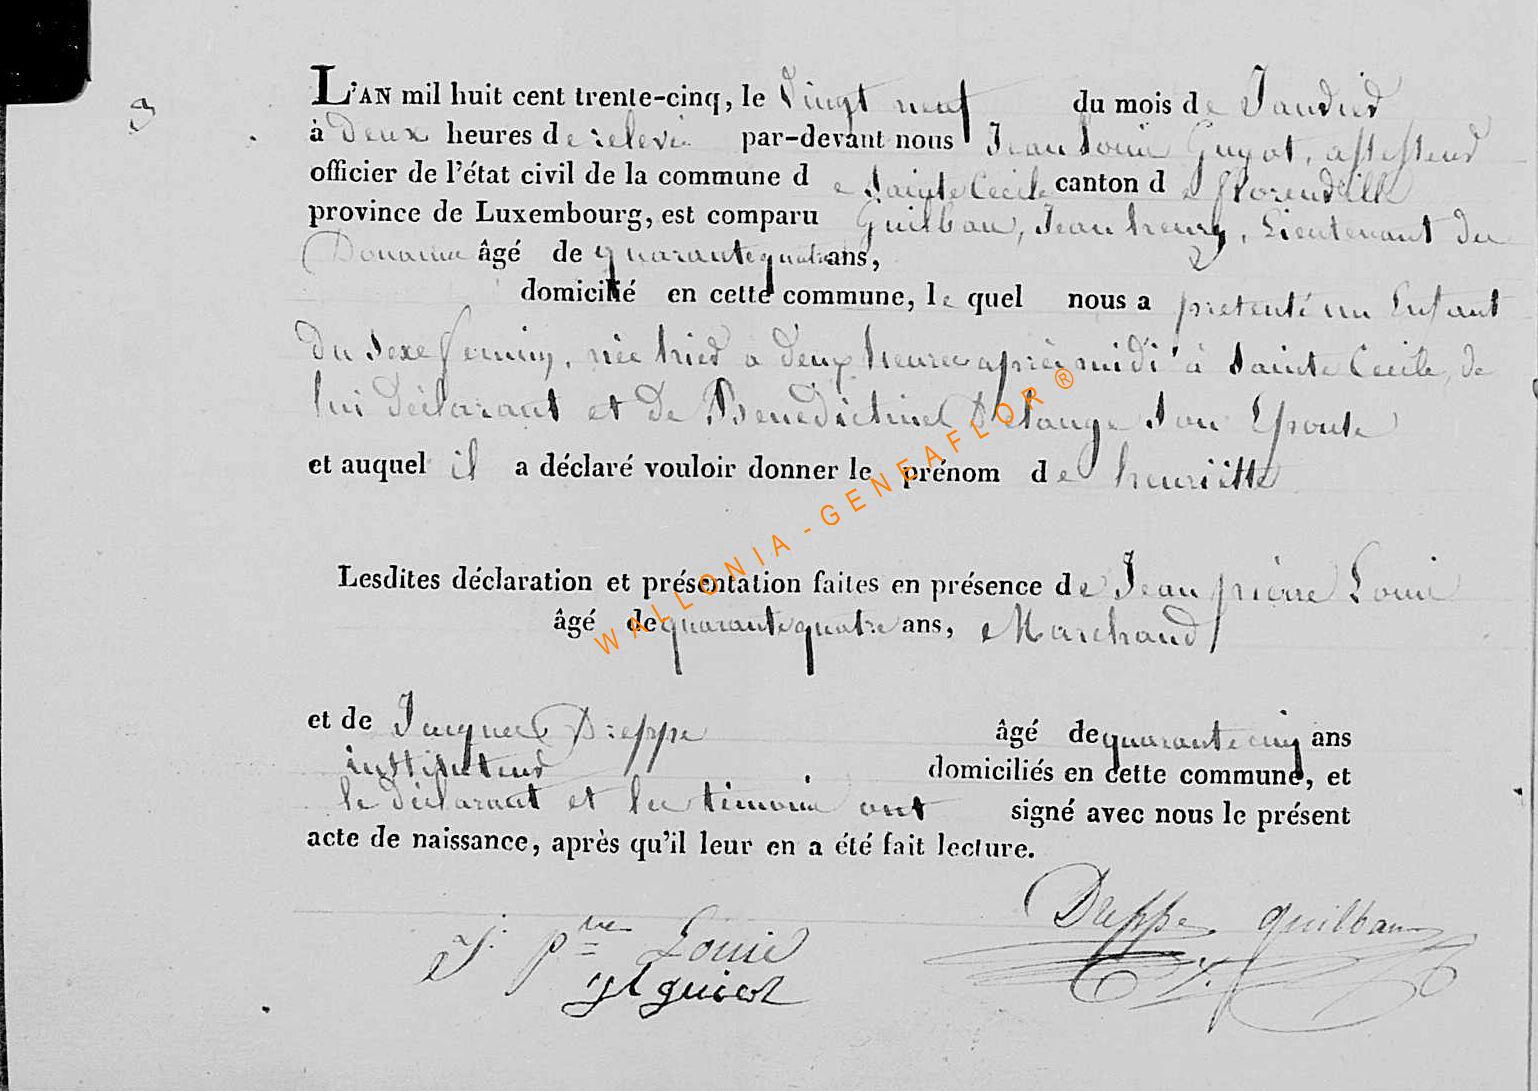 3
L'AN mil huit cent trente-cinq, le Vingt neuf du mois de Janvier
à Deux heures de relevé par-devant nous Jean Louis Guyot, assesseur
officier de l'état civil de la commune de Sainte Cecile canton de florenville
province de Luxembourg, est comparu Guilbau, Jean henry, Lieutenant du
Douanne âgé de quarante quatre ans,
domicilié en cette commune, le quel nous a presenté un Enfant
du sexe feminin, née hier a deux heures après midi à Sainte Cecile, de
lui déclarant et de Benedictine Delange son Epouse
et auquel il a déclaré vouloir donner le prénom de henriette
Lesdites déclaration et présentation faites en présence de Jean pierre Louis
âgé de quarante quatre ans, Marchand
et de Jacques Dreppe âgé de quarante cinq ans
instituteur domiciliés en cette commune, et
le déclarant et les témoins ont signé avec nous le présent
acte de naissance, après qu'il leur en a été fait lecture.
Dreppe guilbau
J. pre Louis
jl guiot
WALLONIA-GENEAFLOR ®